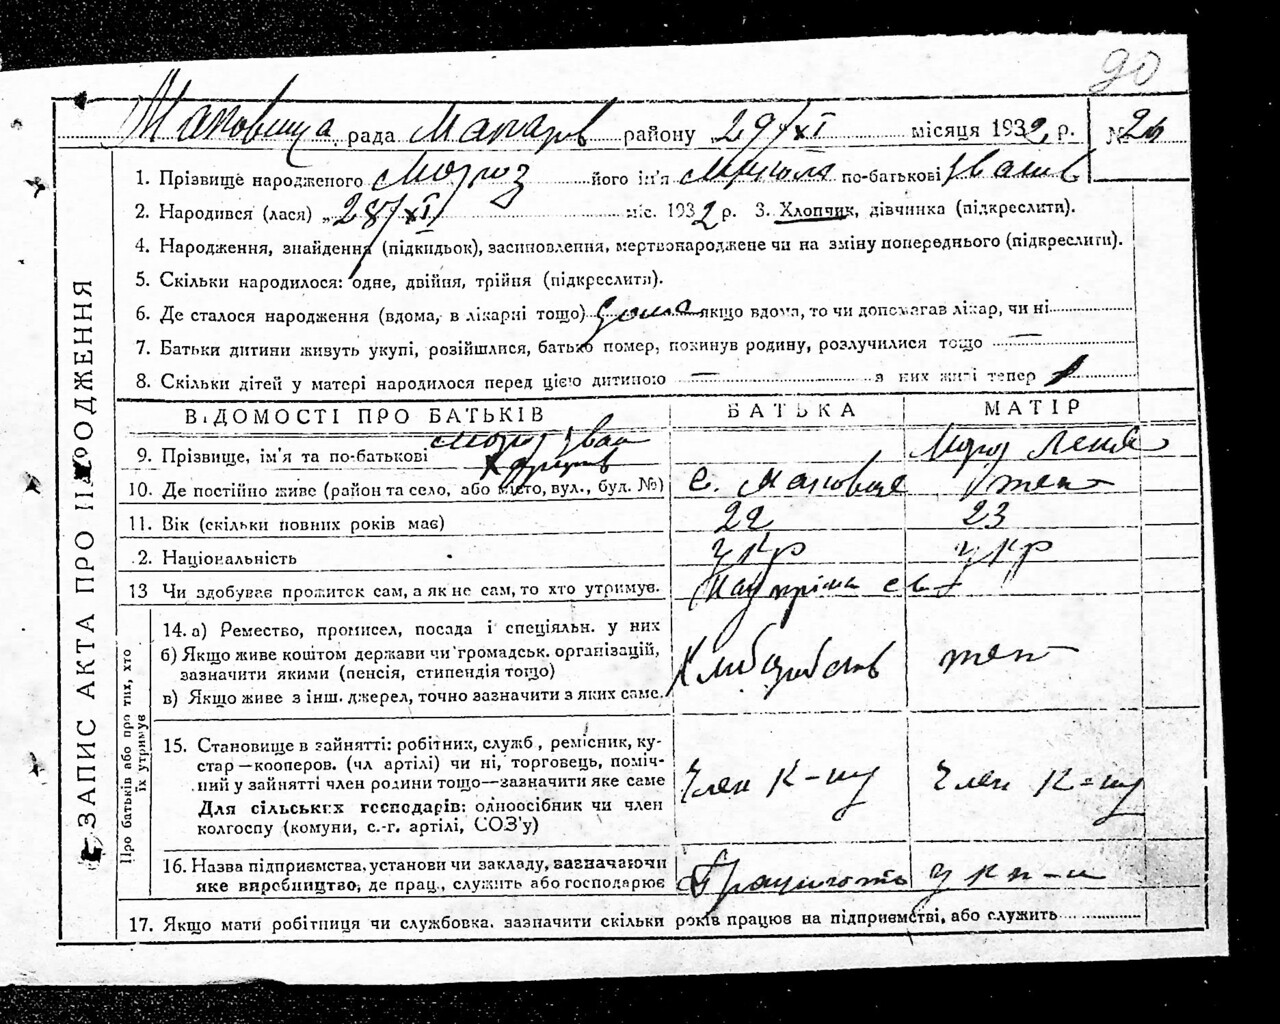 90
Маковища рада Макарів району „29/XI місяця 1932 р. № 26
1. Прізвище народженого Мороз його ім'я Микола по-батькові Іванів
2. Народився (лася) „28/XI міс. 1932 р. 3. Хлопчик, дівчинка (підкреслити).
4. Народження, знайдення (підкидьок), засиновлення, мертвонароджене чи на зміну попереднього (підкреслити).
5. Скільки народилося: одне, двійня, трійня (підкреслити).
6. Де сталося народження (вдома, в лікарні тощо) дома якщо вдома, то чи допомагав лікар, чи ні
7. Батьки дитини живуть укупі, розійшлися, батько помер, покинув родину, розлучилися тощо —
8. Скільки дітей у матері народилося перед цією дитиною — з них живі тепер 1
ВІДОМОСТІ ПРО БАТЬКІВ БАТЬКА МАТІР
9. Прізвище, ім'я та по-батькові Мороз Іван Мороз
10. Де постійно живе (район та село, або місто, вул., буд. №) с. Маковище
11. Вік (скільки повних років має) 22 23
2. Національність укр укр
13 Чи здобуває прожиток сам, а як не сам, то хто утримує.
14. а) Ремество, промисел, посада і спеціяльн. у них
б) Якщо живе коштом держави чи громадськ. організацій,
зазначити якими (пенсія, стипендія тощо)
в) Якщо живе з інш. джерел, точно зазначити з яких саме.
15. Становище в зайнятті: робітник, служб, ремісник, ку-
стар—кооперов. (чл артілі) чи ні, торговець, поміч-
ний у зайнятті член родини тощо—зазначити яке саме
Член К-пу Член К-пу
Для сільських господарів: одноосібник чи член
колгоспу (комуни, с.-г. артілі, СОЗ'у)
16. Назва підприємства, установи чи закладу, зазначаючи
яке виробництво, де прац., служить або господарює
17. Якщо мати робітниця чи службовка, зазначити скільки років працює на підприємстві, або служить
ЗАПИС АКТА ПРО НАРОДЖЕННЯ
Про батьків або про тих, хто
їх утримує